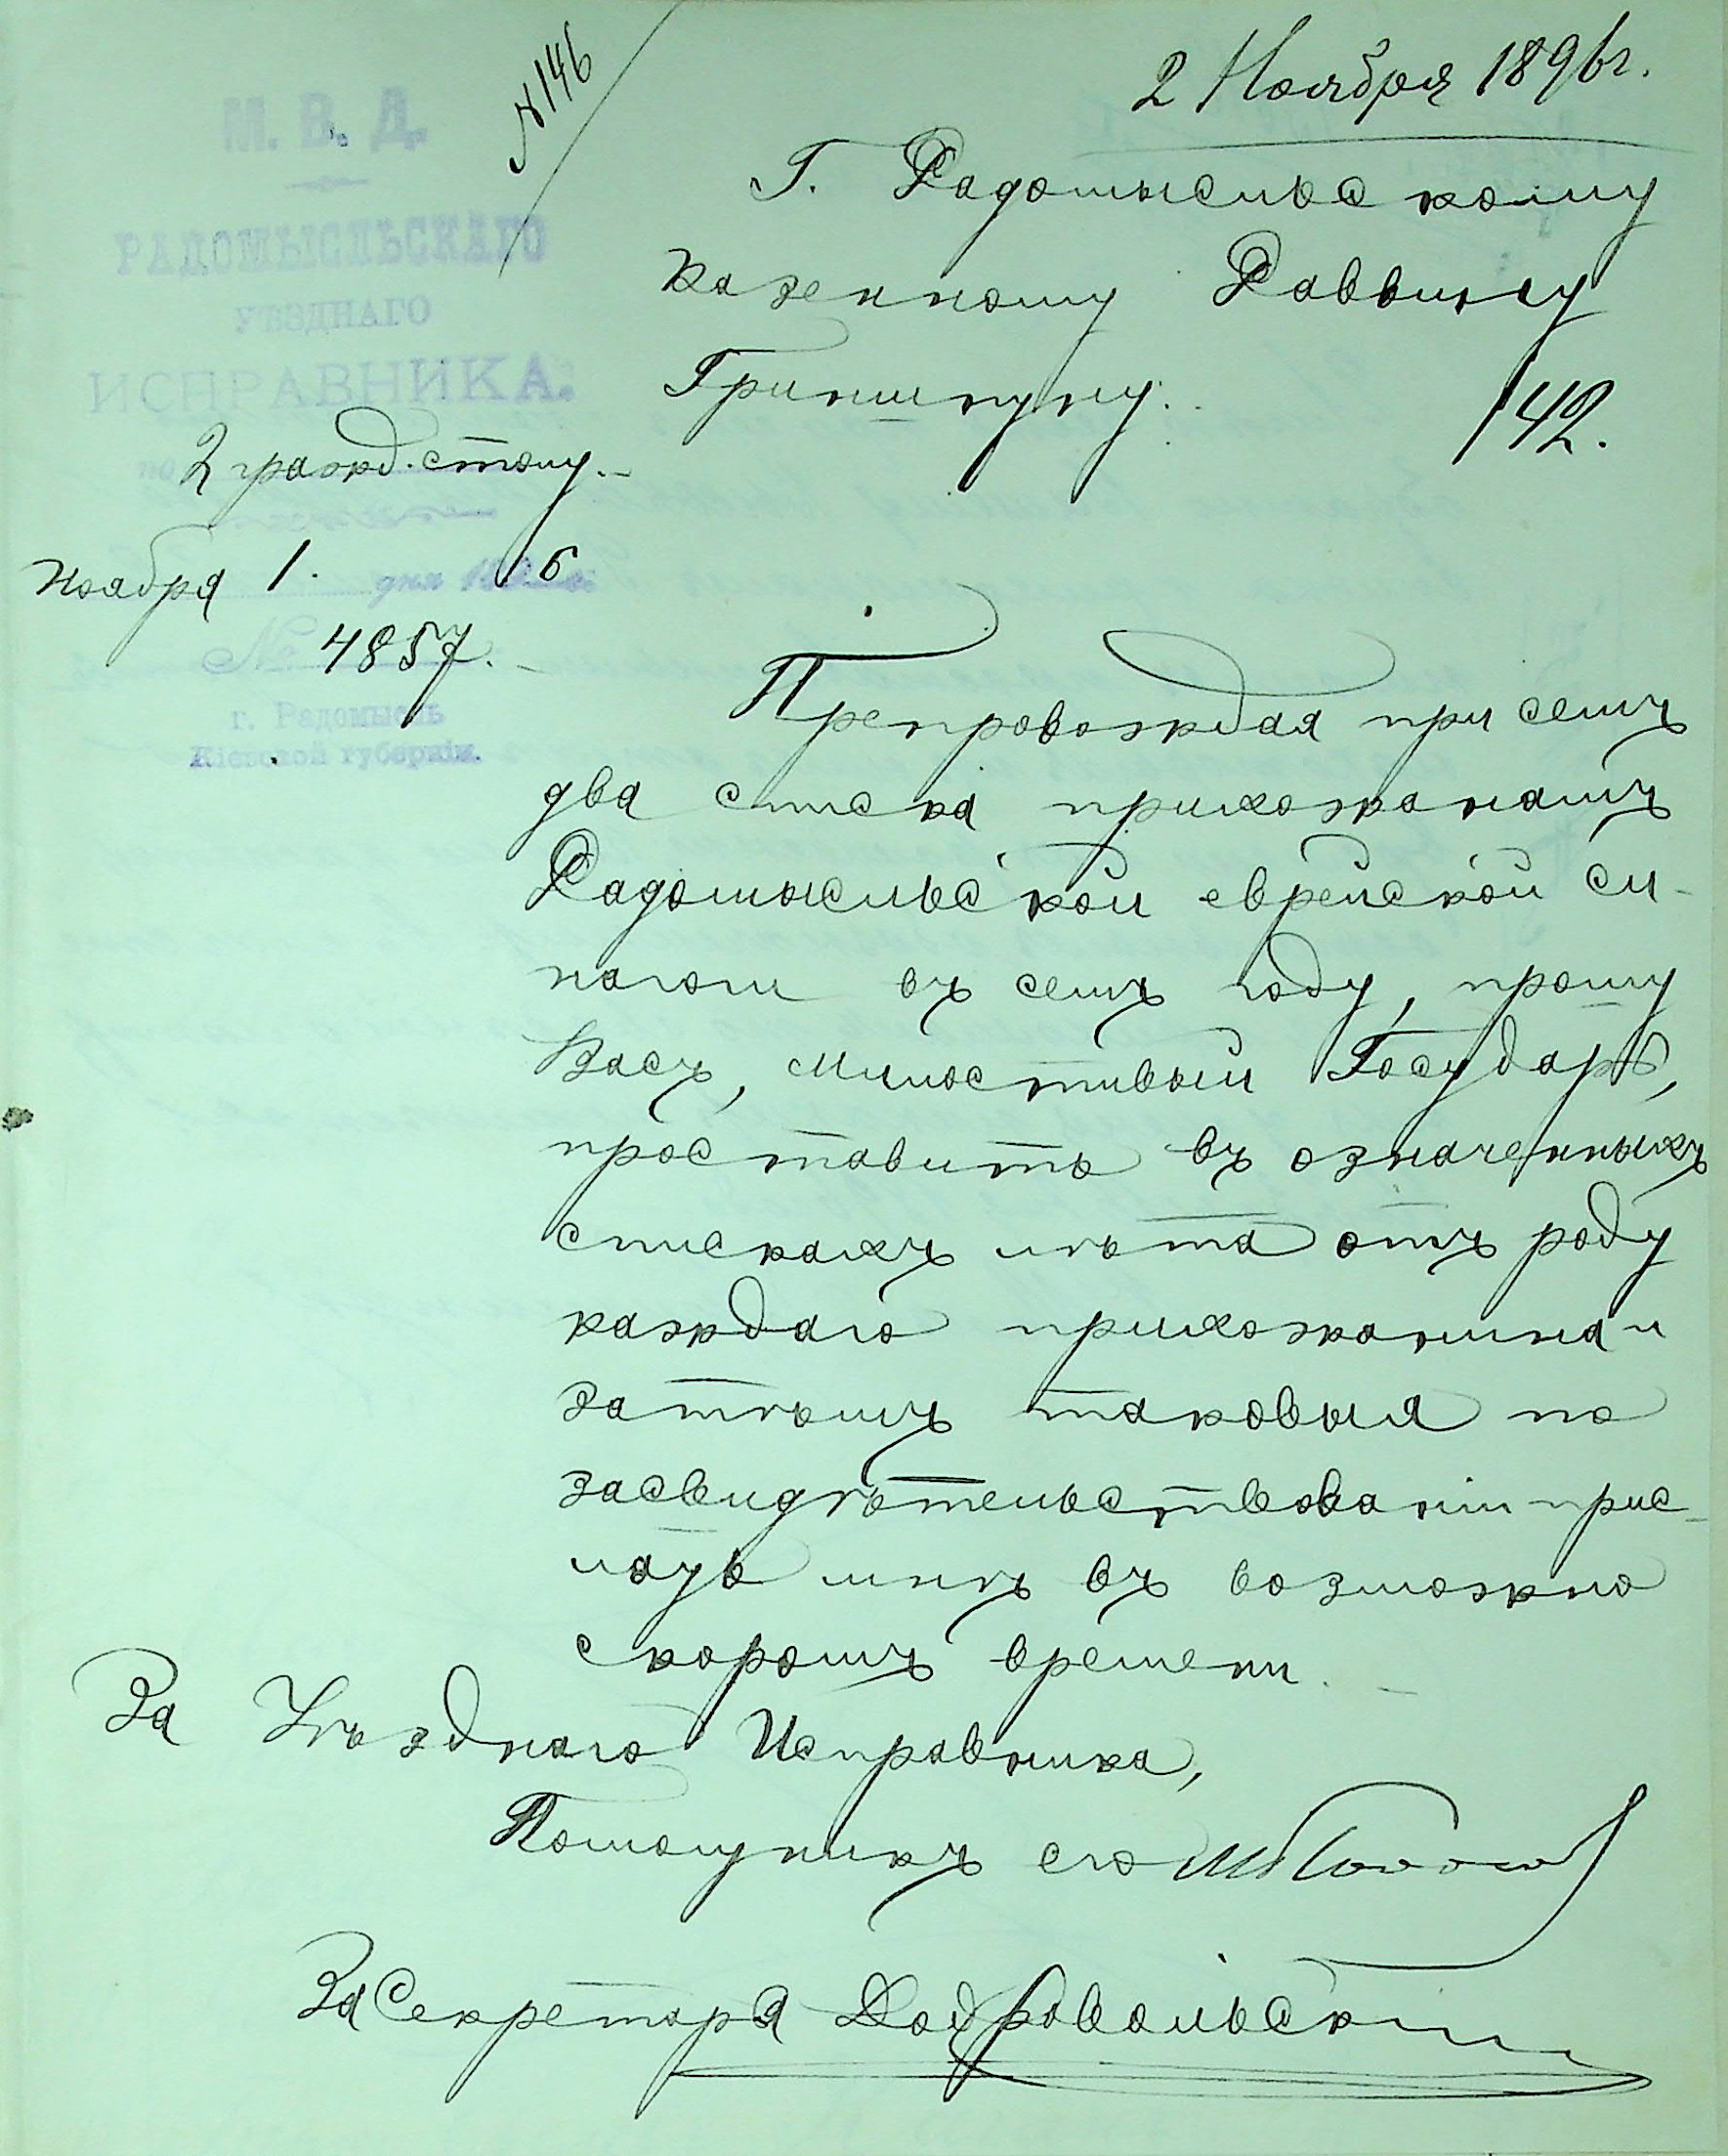 № 146
2 Ноября 1896 г.
М. В. Д.
РАДОМЫСЛЬСКАГО
УѢЗДНАГО
ИСПРАВНИКА.
по
2 гражд. столу.
Ноября 1. дня 1896
№ 4857.
г. Радомысль
Кіевской губерніи.
Г. Радомысльскому
Казенному Раввину
Гриншпуну.
142.
Препровождая при семъ
два списка прихожанамъ
Радомысльской еврейской си-
нагоги въ семъ году, прошу
Васъ, Милостивый Государь,
проставить въ означенныхъ
спискахъ лѣта отъ роду
каждаго прихожанина и
затѣмъ таковыя по
засвидѣтельствованіи прис-
лать мнѣ въ возможно
скоромъ времени.
За Уѣзднаго Исправника,
Помощникъ его
За Секретаря Добровольскій